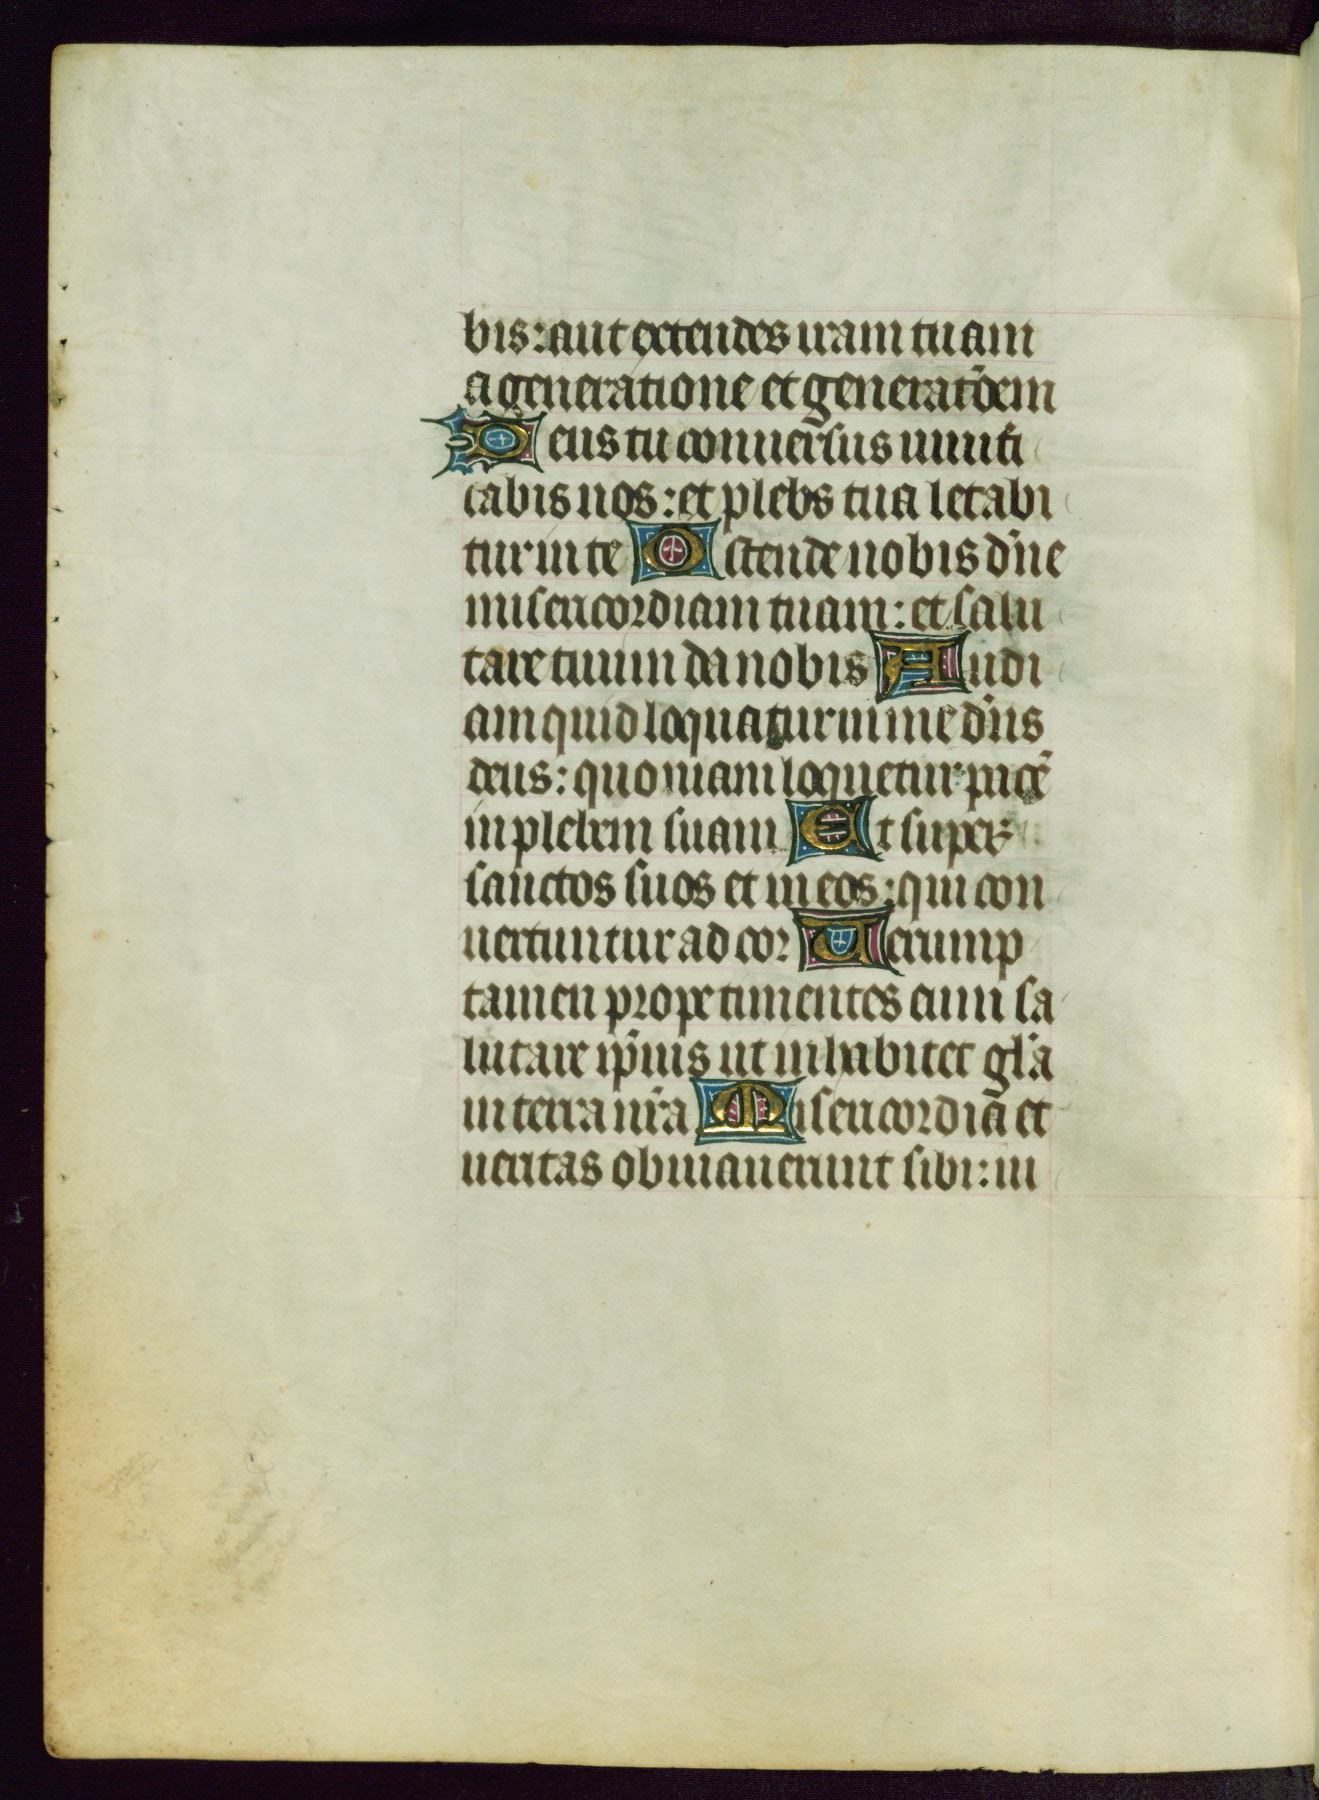 bis: aut extendes iram tuam
a generatione et generac̄oem
Deus tu conuersus uiuifi
cabis nos: et plebs tua letabi
tur in te Ostende nobis dn̄e
misericordiam tuam: et salu
tare tuum da nobis Audi
am quid loquatur in me dn̄s
deus: quoniam loquetur pacē
in plebem suam Et super
sanctos suos et in eos: qui con
uertuntur ad cor Uerump
tamen prope timentes eum sa
lutare ip̄ius ut inhabitet gl̄a
in terra nr̄a Misericordiā et
ueritas obuiauerunt sibi: iu